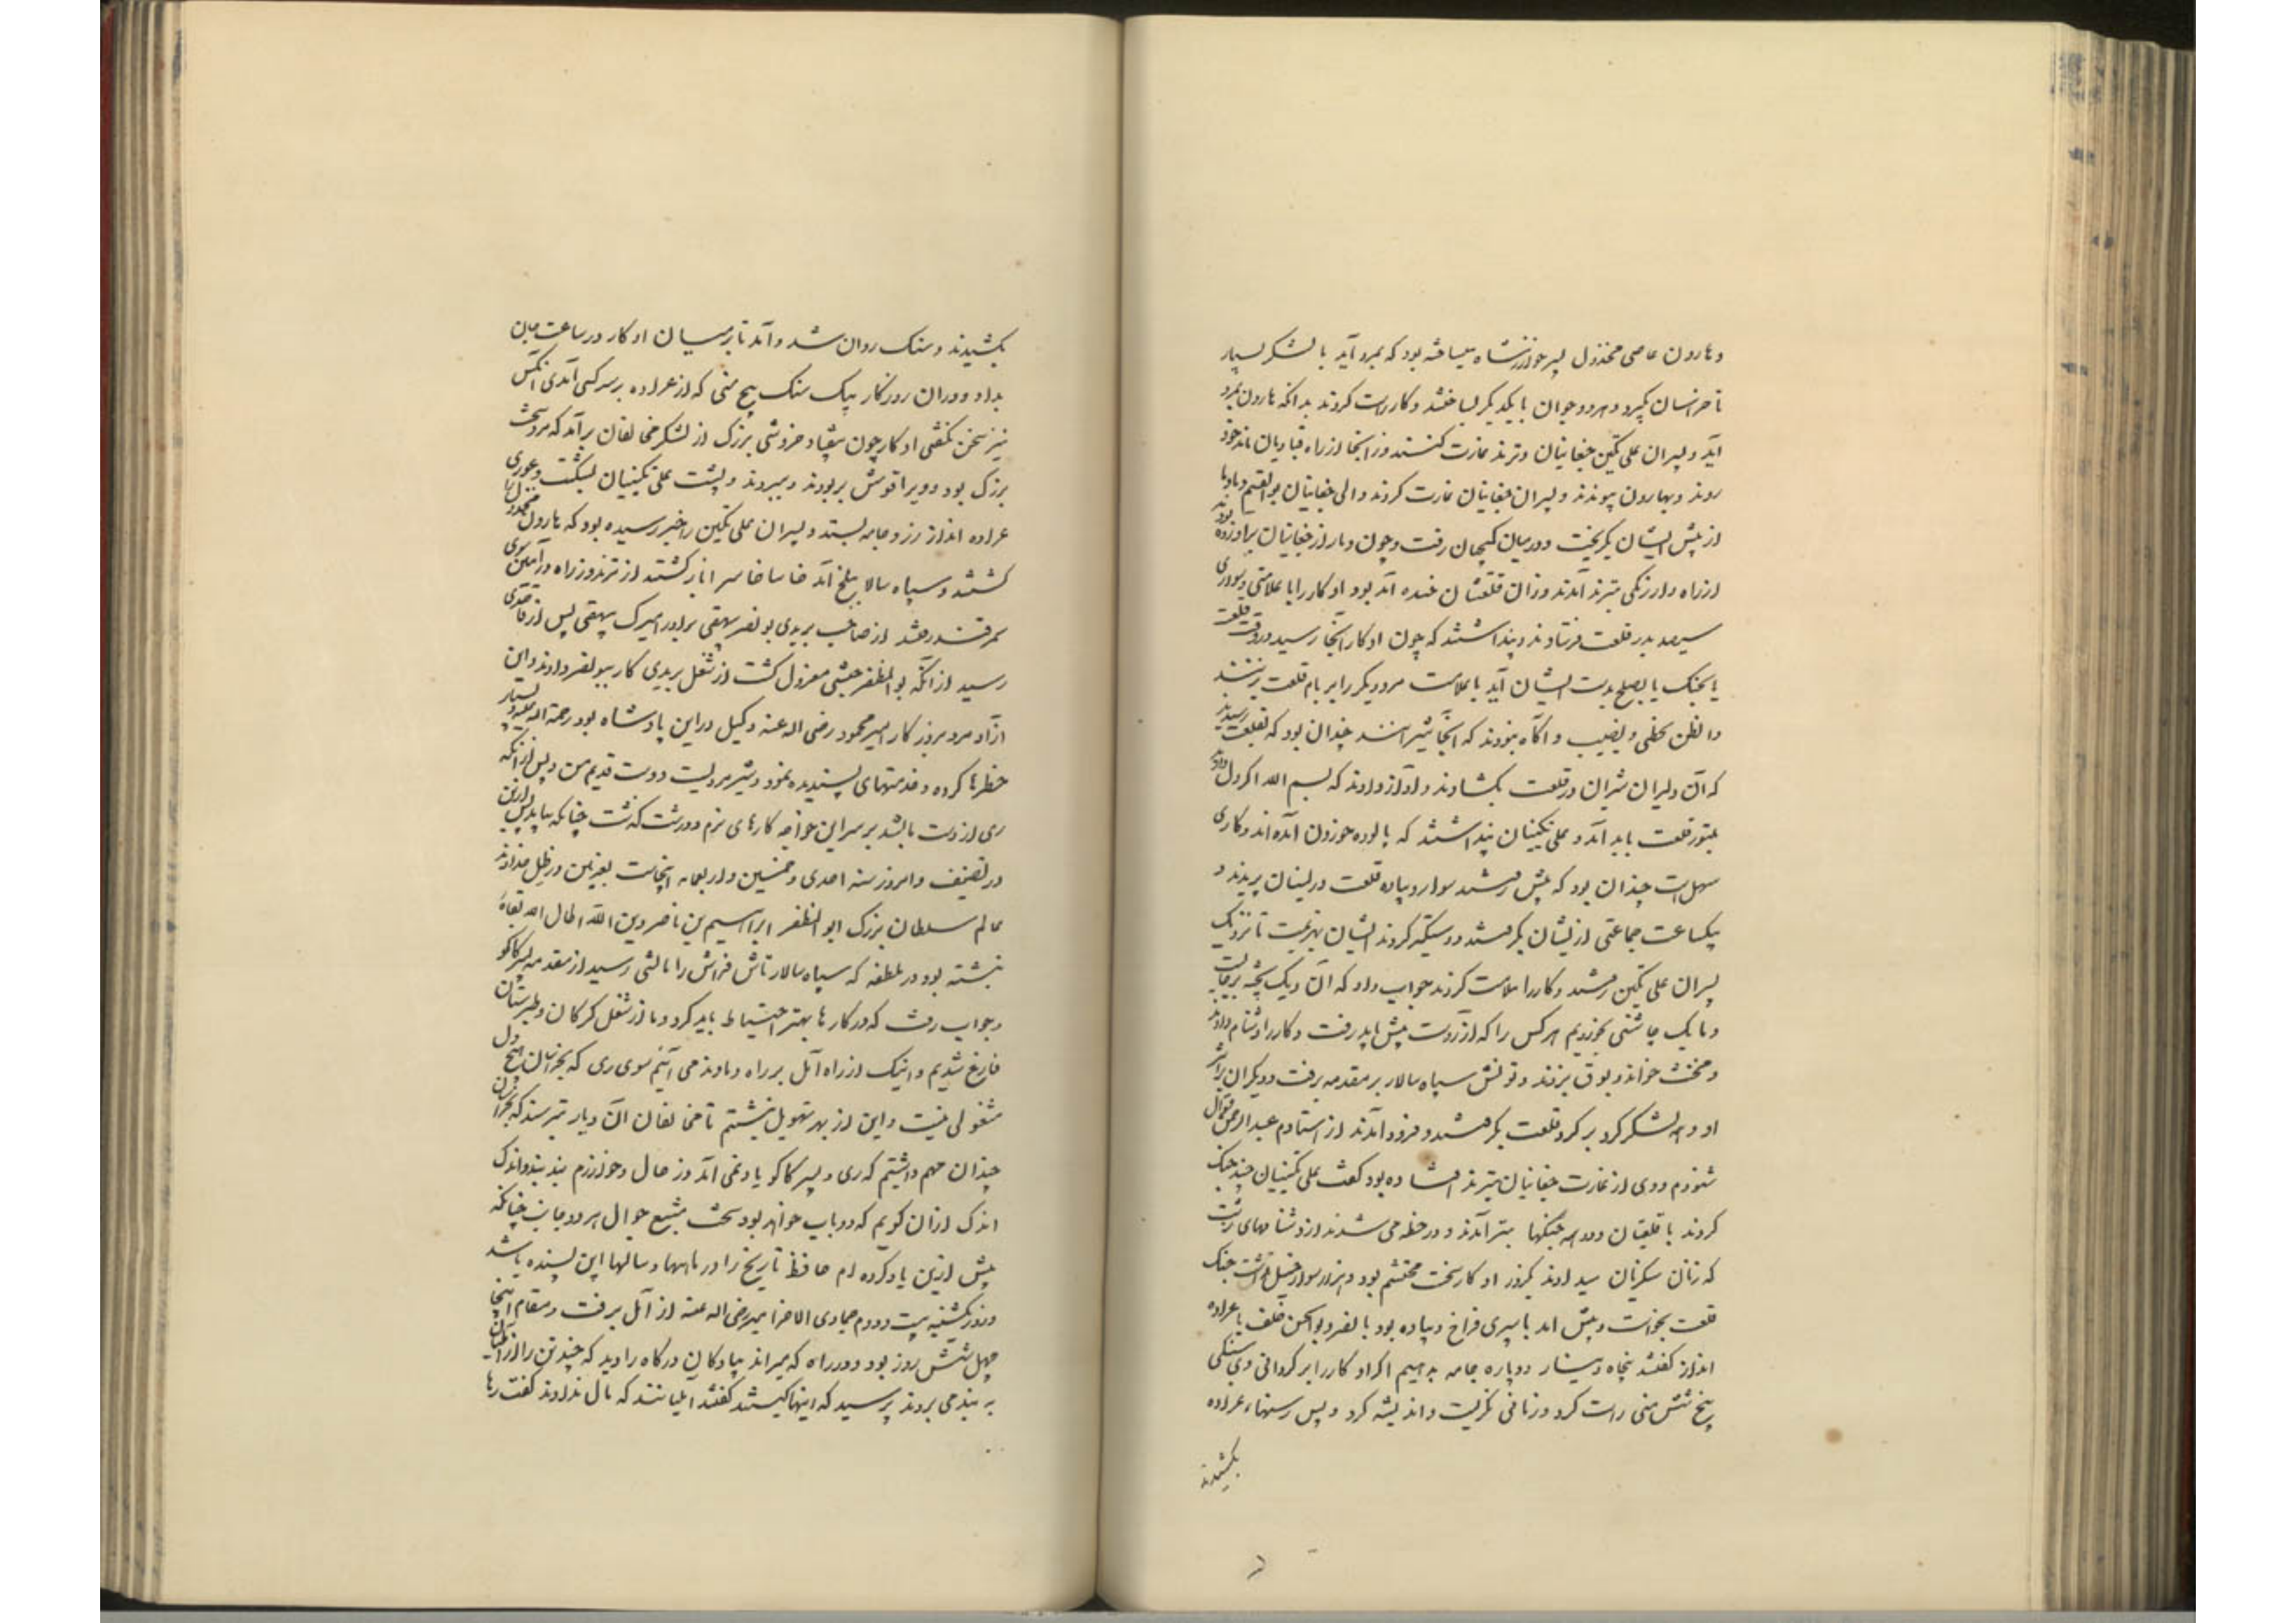 و هارون عاصی مخذول پسر خوارزمشاه میساخته بود که بمرو آید با لشکر بسیار
تا خراسان بگیرد و هر دو جوان با یکدیگر بساختند و کار راست کردند بدانکه هارون بمرو
آید و پسران علی تکین چغانیان و ترمذ غارت کنند و از آنجا از راه قبادیان باندخود
روند و بهارون پیوندند و پسران چغانیان غارت کردند و والی چغانیان بوالقسم دمادم
از پیش ایشان بگریخت و در میان کمیجان رفت و چون دمار از چغانیان برآورده بودند
از راه دارزنگی بترمذ آمدند و زان قلعتشان خنده آمد بود اوکار را با علامتی و سواری
سیصد بدر قلعت فرستادند و پنداشتند که چون اوکار آنجا رسید در وقت قلعت
یا بجنگ یا بصلح بدست ایشان آید تا علامت مرد دیگر را بر بام قلعت بزنند
والظن یخطی و یصیب و آگاه نبودند که آنجا شیرانند چندان بود که بقلعت رسیدند
که آن دلیران شیران در قلعت بگشادند و آواز دادند که بسم الله اگر دل دارید
بستور قلعت باید آمد و علی تکینیان پنداشتند که بالوده خوردن آمده‌اند و کاری
سهل است چندان بود که پیش رفتند سوار و پیاده قلعت در ایشان پریدند و
بیکساعت جماعتی از ایشان بگرفتند و دستگیر کردند ایشان بهزیمت تا نزدیک
پسران علی تکین رفتند و کار را ملامت کردند جواب داد که آن دیگ پخته بر جایست
و ما یک چاشنی بخوردیم هر کس را که آرزوست پیش باید رفت و کار را دشنام دادند
و مخنث خواندند و بوق بزدند و تونش سپاه سالار بر مقدمه برفت و دیگران بر اثر
او و همه لشکر گرد بر گرد قلعت بگرفتند و فرود آمدند از استادم عبدالرحمن قوال
شنودم و وی از غارت چغانیان بترمذ افتاده بود گفت علی تکینیان چند جنگ
کردند با قلعتیان و در همه جنگها بتر آمدند و در خطه می شدند از دشنامهای زشت
که زنان سکزیان میدادند یکروز اوکار سخت محتشم بود و هزار سوار خیل داشت جنگ
قلعت بخواست و پیش آمد با سپری فراخ و پیاده بود با نصر و بوالحسن خلف با عراده
انداز گفتند پنجاه دینار و دو پاره جامه بدهیم اگر اوکار را برگردانی وی سنگی
پنج شش منی راست کرد و زمانی نگریست و اندیشه کرد و پس رسنهاء عراده
بکشیدند
بکشیدند و سنگ روان شد و آمد تا بر میان اوکار در ساعت جان
بداد و در آن روزگار بیک سنگ پنج منی که از عراده بر سر کسی آمدی آنکس
نیز سخن نگفتی اوکار چون بیفتاد خروشی بزرگ از لشکر مخالفان برآمد که مرد سخت
بزرگ بود و ویرا قومش بربودند و ببردند و پشت علی تکینیان بشکست و غوری
عراده انداز زر و جامه بستد و پسران علی تکین را خبر رسیده بود که هارون مخذول را
کشتند و سپاه سالار ببلخ آمد خاسا خاسرا بازگشتند از ترمذ و از راه درآهنین سوی
سمرقند رفتند از صاحب بریدی بو نصر بیهقی برادر امیرک بیهقی پس از قاصدی
رسید از آنکه بوالمظفر حبشی معزول گشت از شغل بریدی کار ببونصر دادند و این
آزاد مرد بروزگار امیر محمود رضی الله عنه وکیل در این پادشاه بود رحمة الله علیه و بسیار
خطرها کرده و خدمتهای پسندیده نمود و شیر مردیست دوست قدیم من و پس از آنکه
ری از دست ما بشد بر سر این خواجه کارهای نرم و درشت گذشت چنانکه بیاید پس ازین
در تصنیف و امروز سنه احدی و خمسین و اربعمائه اینجاست بغزنین در ظل خداوند
عالم سلطان بزرگ ابوالمظفر ابراهیم بن ناصر دین الله اطال الله بقاه
نبشته بود در ملطفه که سپاه سالار تاش فراش را مالشی رسید از مقدمه پسر کاکو
و جواب رفت که در کارها بهتر احتیاط باید کرد و ما از شغل گرگان و طبرستان
فارغ شدیم و اینک از راه آمل بر راه دماوند می آئیم سوی ری که بخراسان هیچ دل
مشغولی نیست و این از بهر تهویل نبشتم تا مخالفان آن دیار بترسند که بخراسان
چندان مهم داشتیم که ری و پسر کاکو یاد نمی آمد و از حال خوارزم بند بند و اندک
اندک ازان گویم که دو باب خواهد بود سخت مشبع احوال هر دو جانب چنانکه
پیش ازین یاد کرده ام حافظ تاریخ را در ماهها و سالها این بسنده باشد
و روز یکشنبه بیست و دوم جمادی الاخر امیر رضی الله عنه از آمل برفت و مقام اینجا
چهل و شش روز بود و در راه که میراند پیادگان درگاه را دید که چند تن را از آملیان
به بند می بردند پرسید که اینها کیستند گفتند آملیانند که مال ندادند گفت رها